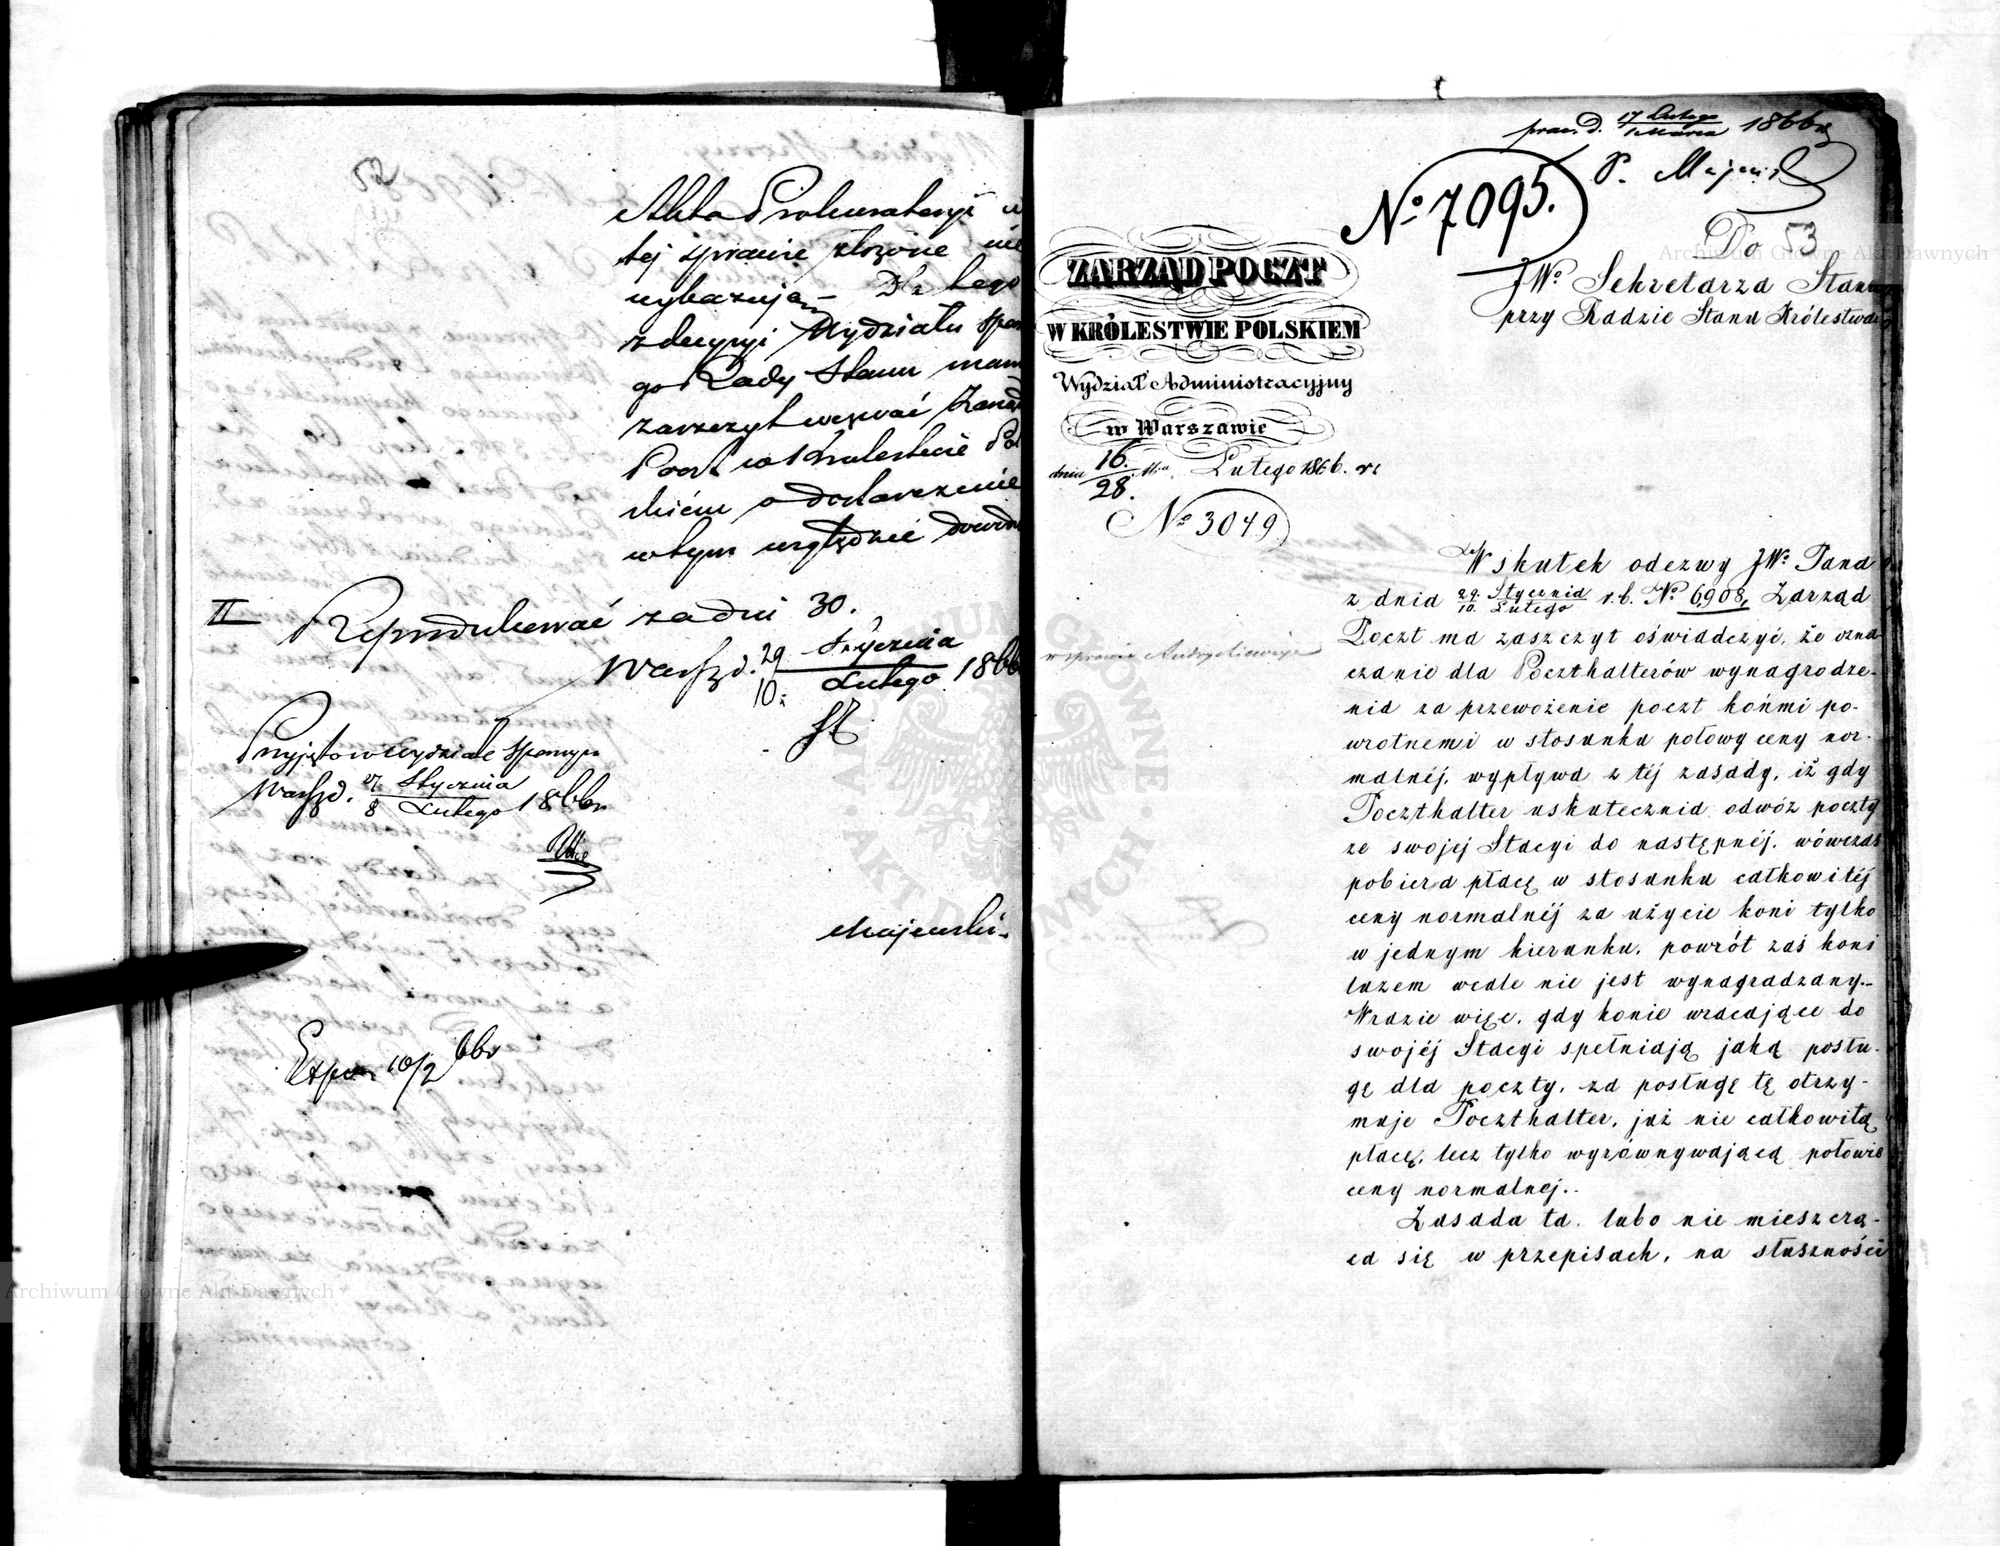 52
Akta Prokuratoryi w
tej sprawie złożone nie
wykazują – Dla tego
z decyzyi Wydziału Spor
go Rady Stanu mam
zaszczyt wezwać Zarząd
Poczt w Królestwie Pol
skiém o dostarczenie
w tym względzie dowod
II Reprodukować za dni 30.
Warsz d. 29 Stycznia / 10 Lutego 1866
Przyjęto w Wydziale Sporny
Warsz d. 27 Stycznia / 8 Lutego 1866 r
Majewski
Exp. 10/2 66 r
prez. d. 17 Lutego / 1 Marca 1866 r
P. Majewski
№ 7095.
Do 53
JW° Sekretarza Stanu
przy Radzie Stanu Królestwa
ZARZĄD POCZT
W KRÓLESTWIE POLSKIEM
Wydział Administracyjny
w Warszawie
dnia 16./28. M-ca Lutego 1866. r.
№ 3049
w sprawie Andrychiewicza
Wskutek odezwy JW° Pana
z dnia 29. Stycznia / 10. Lutego r. b. № 6908, Zarząd
Poczt ma zaszczyt oświadczyć, że ozna-
czanie dla Poczthalterów wynagrodze-
nia za przewożenie poczt końmi po-
wrotnemi w stosunku połowy ceny nor-
malnéj, wypływa z téj zasady, iż gdy
Poczthalter uskutecznia odwóz poczty
ze swojej Stacyi do następnéj, wówczas
pobiera płacę w stosunku całkowitéj
ceny normalnéj za użycie koni tylko
w jednym kierunku, powrót zaś koni
luzem wcale nie jest wynagradzany.–
W razie więc, gdy konie wracające do
swojéj Stacyi spełniają jaką posłu-
gę dla poczty, za posługę tę otrzy-
muje Poczthalter, już nie całkowitą
płacę, lecz tylko wyrównywającą połowie
ceny normalnej..
Zasada ta, lubo nie mieszczą-
ca się w przepisach, na słuszności
Archiwum Główne Akt Dawnych
Archiwum Główne Akt Dawnych
ARCHIWUM GŁÓWNE AKT DAWNYCH